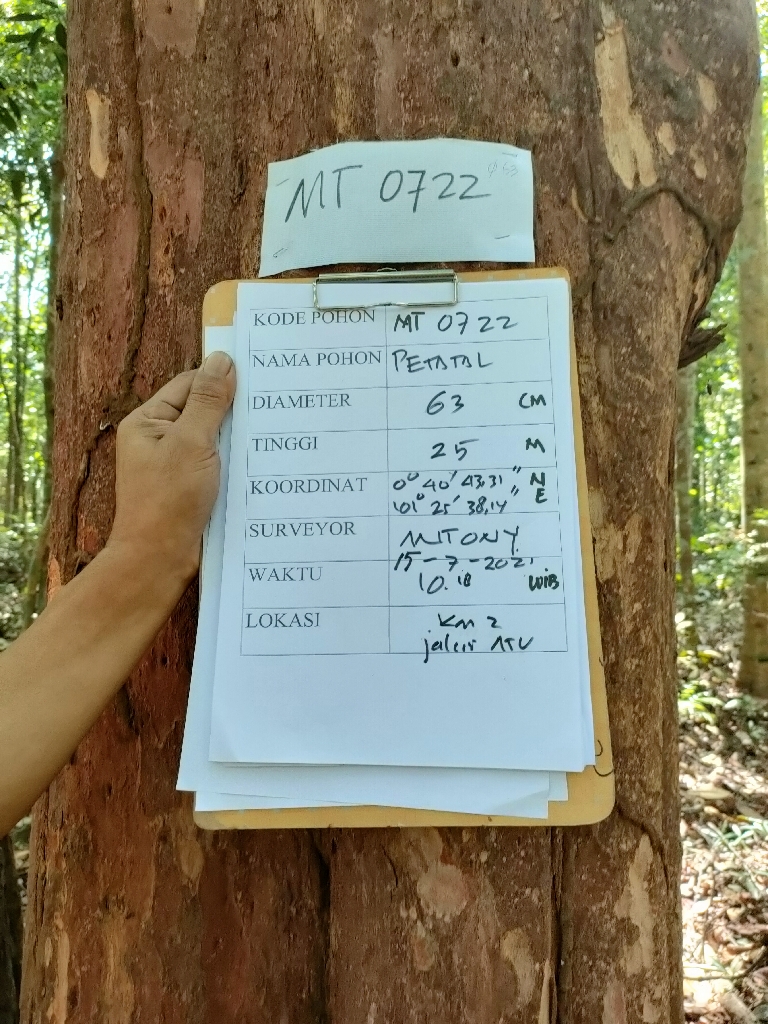 MT 0722 ø 63
KODE POHON MT 0722
NAMA POHON PETATAL
DIAMETER 63 CM
TINGGI 25 M
KOORDINAT 0° 40' 43,31" N
101° 25' 38,14" E
SURVEYOR
WAKTU 15-7-2021
10.18 WIB
LOKASI KM 2
jalur ATV